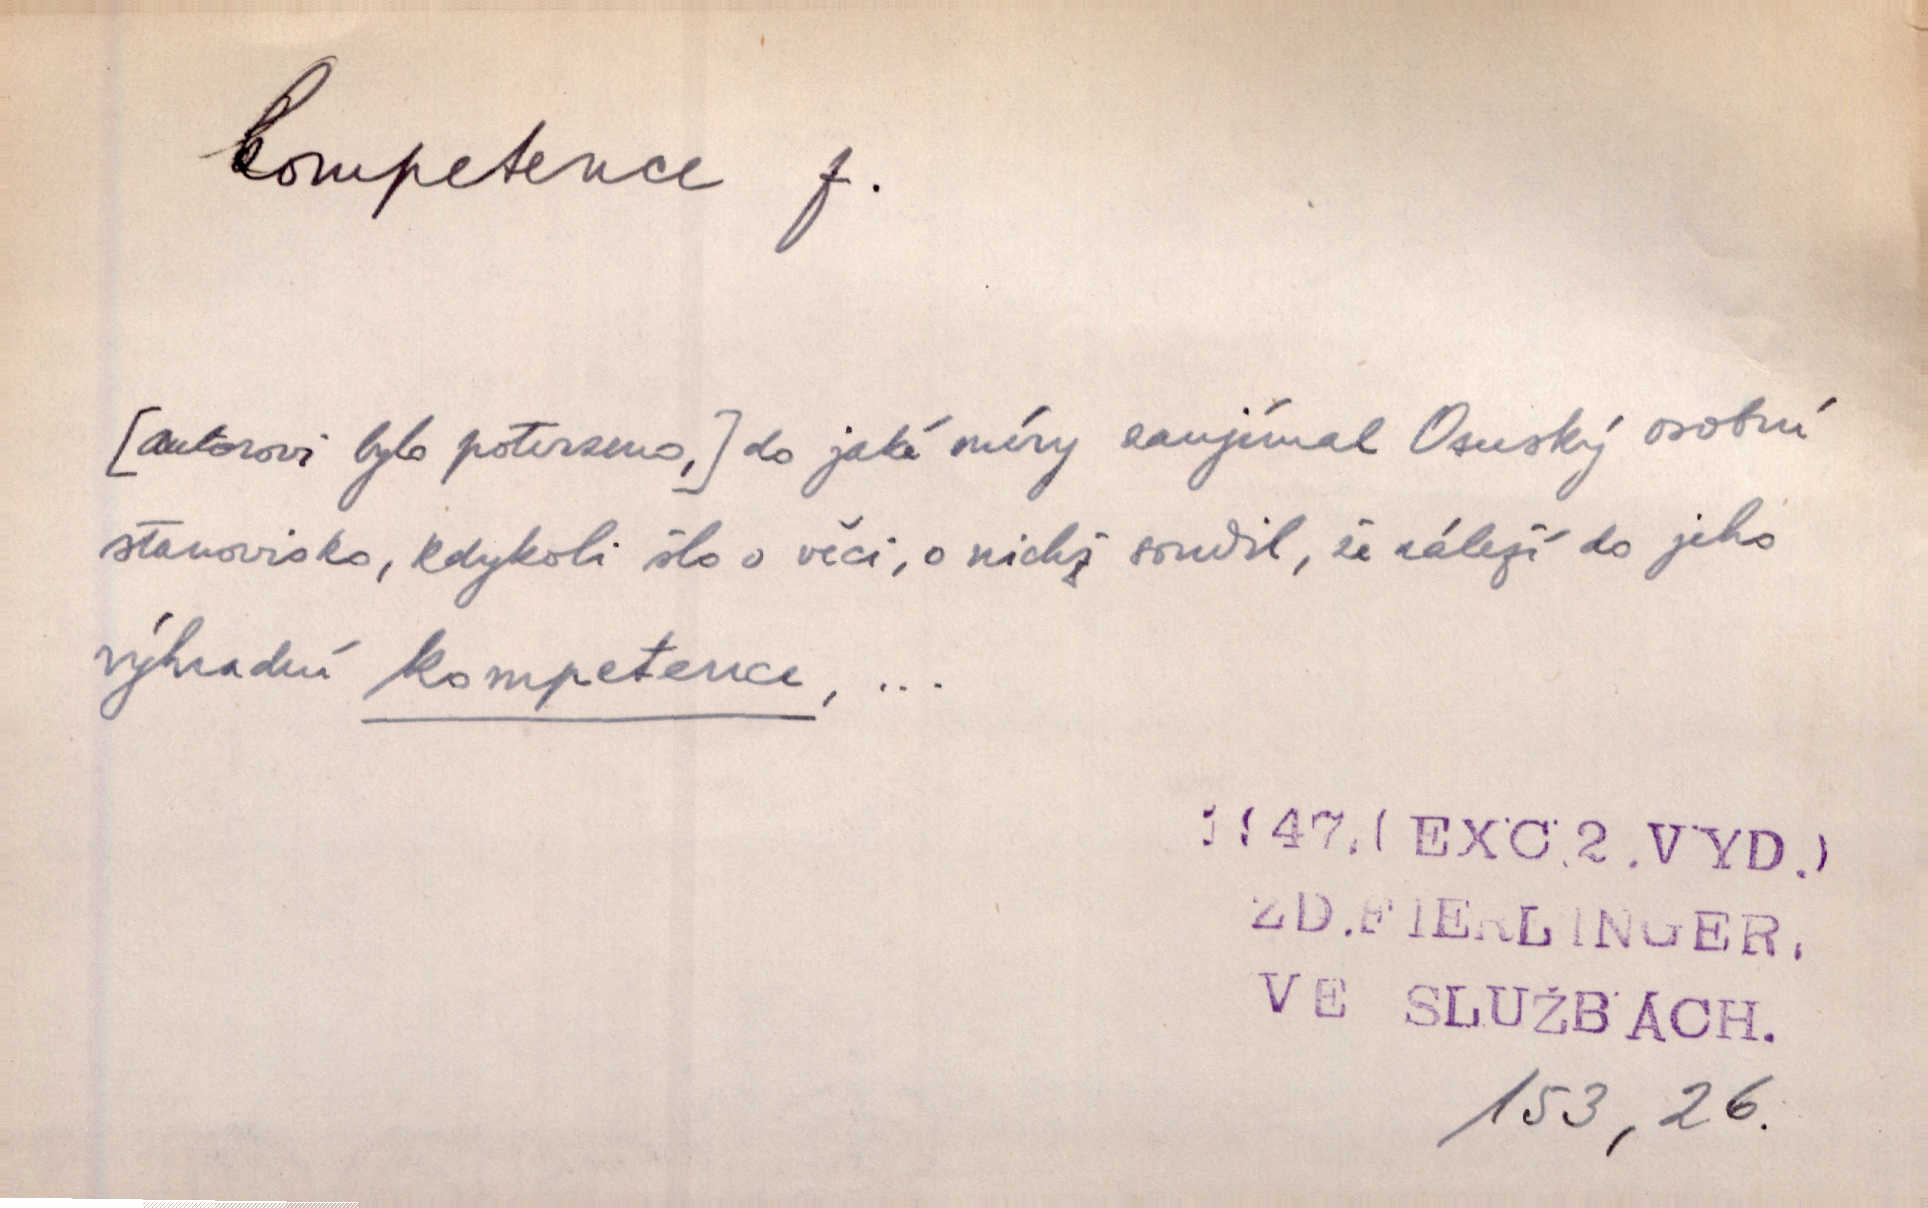 kompetence f.
[autorovi bylo potvrzeno,] do jaké míry zaujímal Osuský osobní
stanovisko, kdykoli šlo o věci, o nichž soudil, že náleží do jeho
výhradní kompetence, ...
1947.(EXC.2.VYD.)
ZD.FIERLINGER.
VE SLUŽBÁCH.
153, 26.